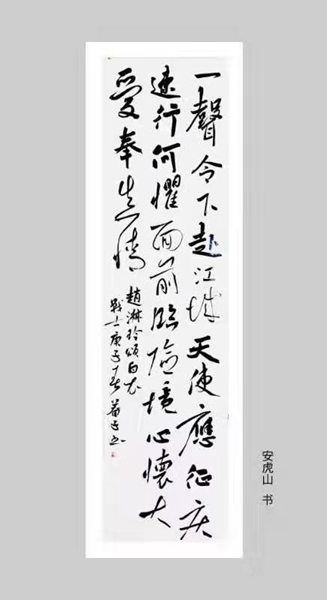 一聲令下赴江城天使應征疾
速行何懼面前臨險境心懷大
愛奉真情
趙淋玲頌白衣
戰士庚子
安虎山 书